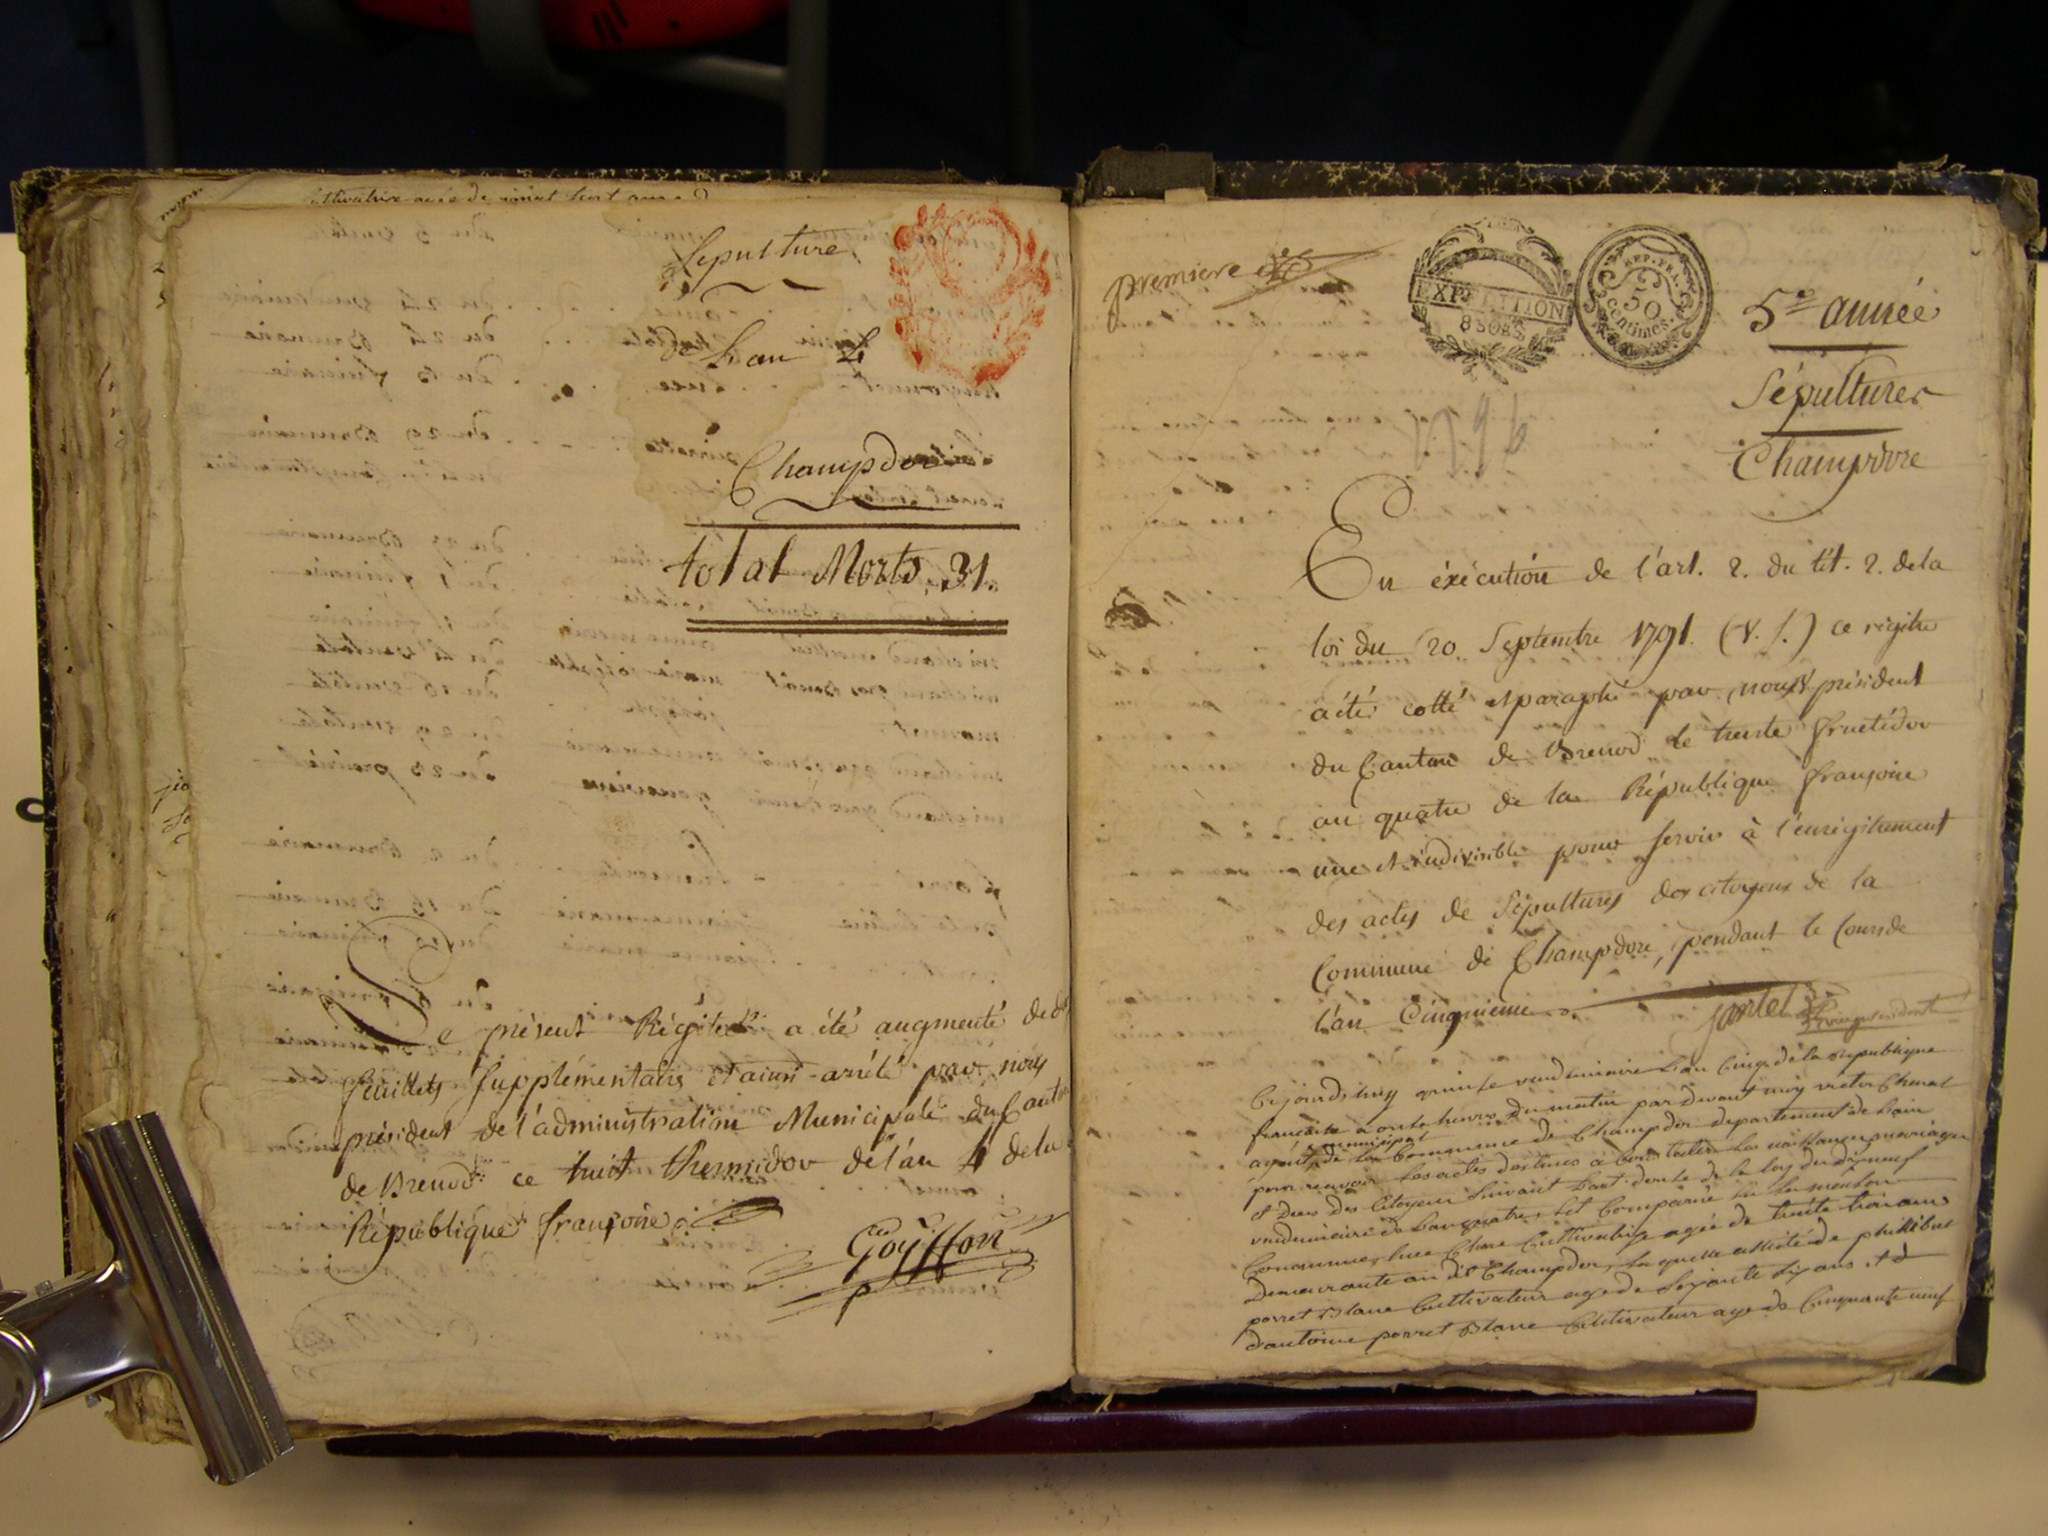 Sepulture
de l'an 4
Champdor
total Morts 31.
Le présent Régitre a été augmenté de d
feuillets supplémentaires et ainsi arrété par nous
président de l'administration Municipale du Canton
de Brenod ce huit thermidor de l'an 4 de la
République françoise
Goÿffon
premiere
EXPEDITION
REP. FRA.
50
centimes
5e année
Sépultures
Champdore
1796
En éxécution de l'art. 2. du tit. 2. de la
loi du 20 Septembre 1791. (V. S.) ce régitre
a été cotté et paraphé par nous président
du Canton de Brenod le trente fructidor
an quatre de la République françoise
une et indivisible pour servir à l'enrégitrement
des actes de Sépultures des citoyens de la
Commune de Champdore, pendant le Cours de
l'an Cinquieme.
Cejourd'huy quinze vendemiaire l'an Cinq de la republique
francaise a onze heures du matin par devant moy victor Chenal
agent municipal de la Commune de Champdor departement de lain
pour recevoir les actes destinés à Constater les naissances mariages
et deces des Citoyens suivant l'art. de la loy du dixneuf
vendemiaire de l'an quatre, est Comparue en la maison
Commune, Cultivatrice agée de trente trois ans
demeurante au dit Champdor, laquelle assistée de philibert
perret Blanc Cultivateur age de soixante six ans et
d'antoine perret Blanc Cultivateur age de Cinquante neuf